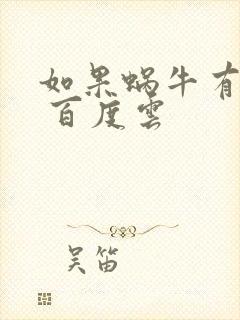 如果蜗牛有
百度雲
吴笛